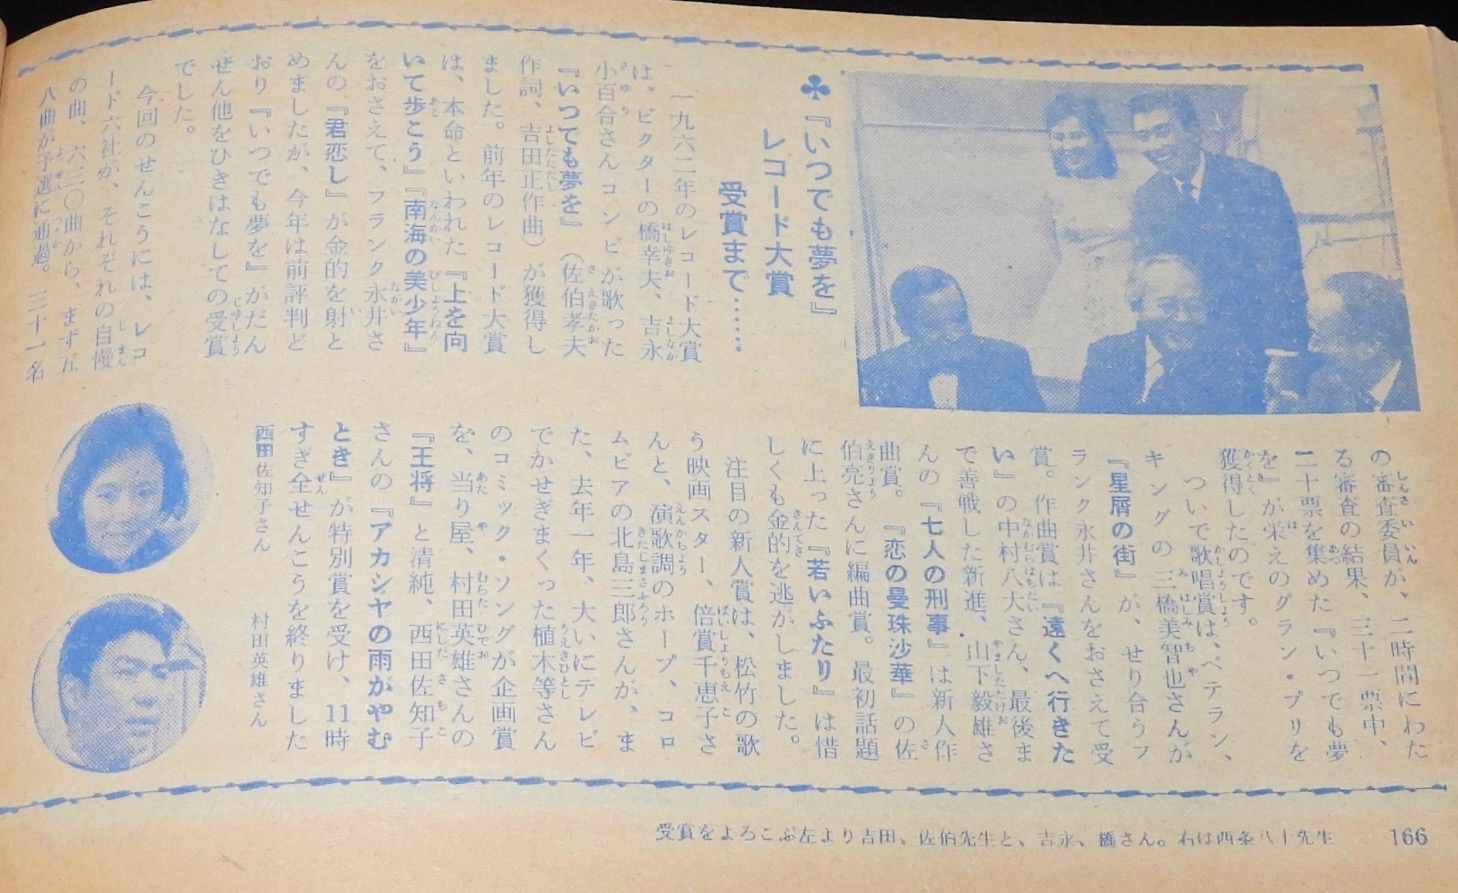 ♣『いつでも夢を』
レコード大賞
受賞まで……
一九六二年のレコード大賞
は、ビクターの橋幸夫、吉永
小百合さんコンビが歌った
『いつでも夢を』(佐伯孝夫
作詞、吉田正作曲)が獲得し
ました。前年のレコード大賞
は、本命といわれた『上を向
いて歩こう』『南海の美少年』
をおさえて、フランク永井さ
んの『君恋し』が金的を射と
めましたが、今年は前評判ど
おり『いつでも夢を』がだん
ぜん他をひきはなしての受賞
でした。
今回のせんこうには、レコ
ード六社が、それぞれの自慢
の曲、六三〇曲から、まず五
八曲が予選に通過。三十一名
の審査委員が、二時間にわた
る審査の結果、三十一票中、
二十票を集めた『いつでも夢
を』が栄えのグラン・プリを
獲得したのです。
ついで歌唱賞は、ベテラン、
キングの三橋美智也さんが
『星屑の街』が、せり合うフ
ランク永井さんをおさえて受
賞。作曲賞は『遠くへ行きた
い』の中村八大さん、最後ま
で善戦した新進、山下毅雄さ
んの『七人の刑事』は新人作
曲賞。『恋の曼珠沙華』の佐
伯亮さんに編曲賞。最初話題
に上った『若いふたり』は惜
しくも金的を逃がしました。
注目の新人賞は、松竹の歌
う映画スター、倍賞千恵子さ
んと、演歌調のホープ、コロ
ムビアの北島三郎さんが、ま
た、去年一年、大いにテレビ
でかせぎまくった植木等さん
のコミック・ソングが企画賞
を、当り屋、村田英雄さんの
『王将』と清純、西田佐知子
さんの『アカシヤの雨がやむ
とき』が特別賞を受け、11時
すぎ全せんこうを終りました
西田佐知子さん
村田英雄さん
受賞をよろこぶ左より吉田、佐伯先生と、吉永、橋さん。右は西条八十先生
166